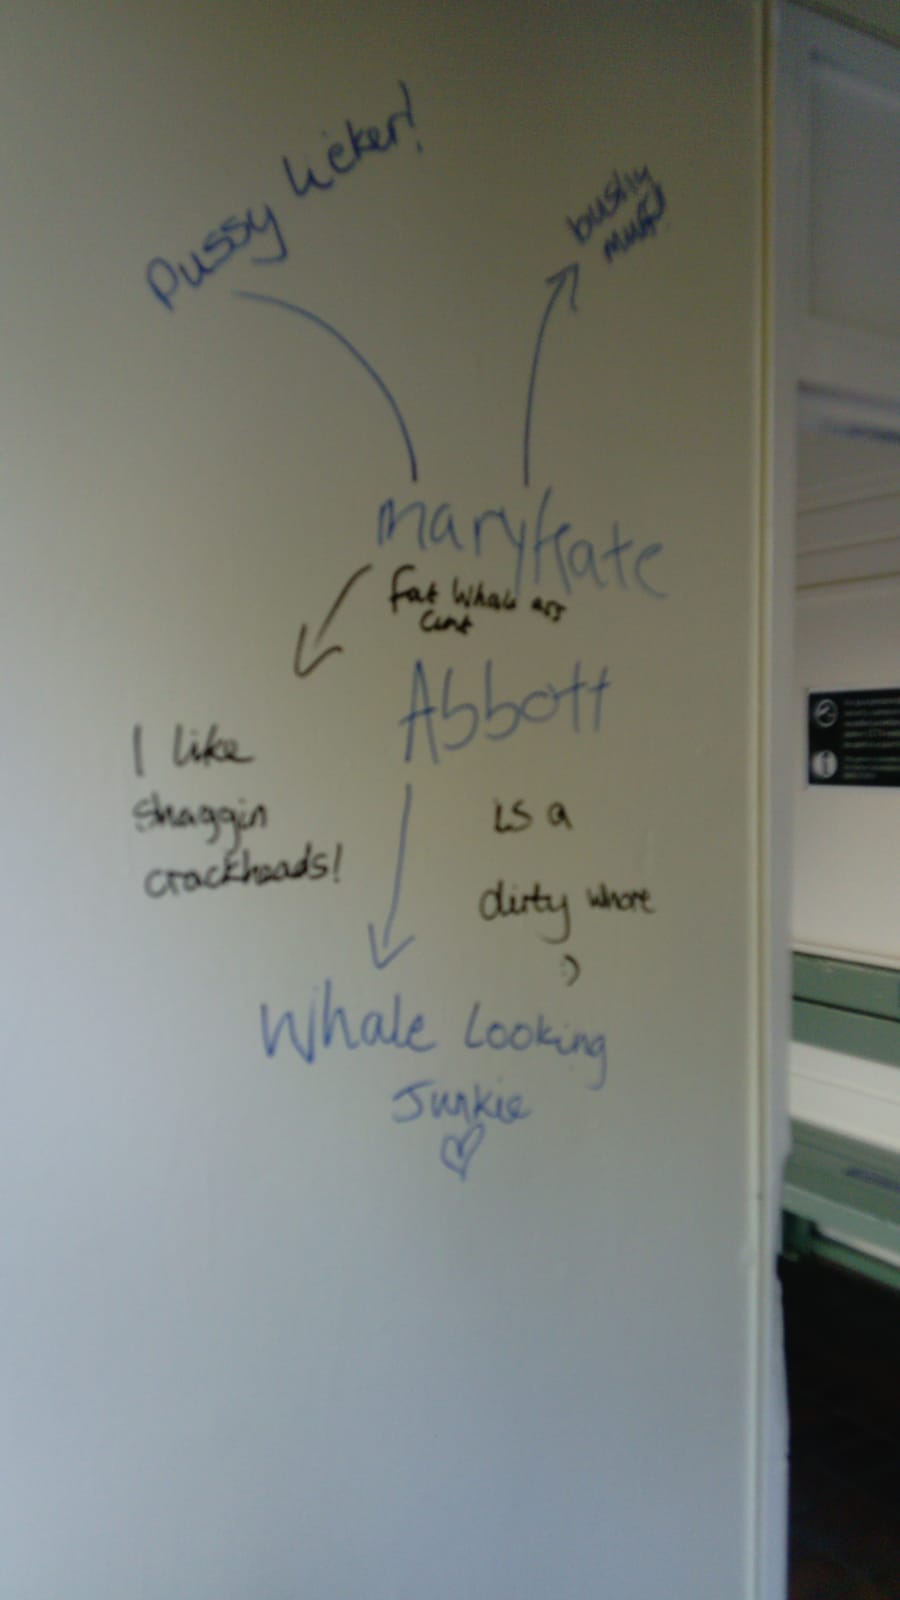 Pussy licker!
bushy
muff!
maryKate
fat Whale ass
Cunt
Abbott
I like
Shaggin
crackheads!
is a
dirty whore
:)
Whale Looking
Junkie